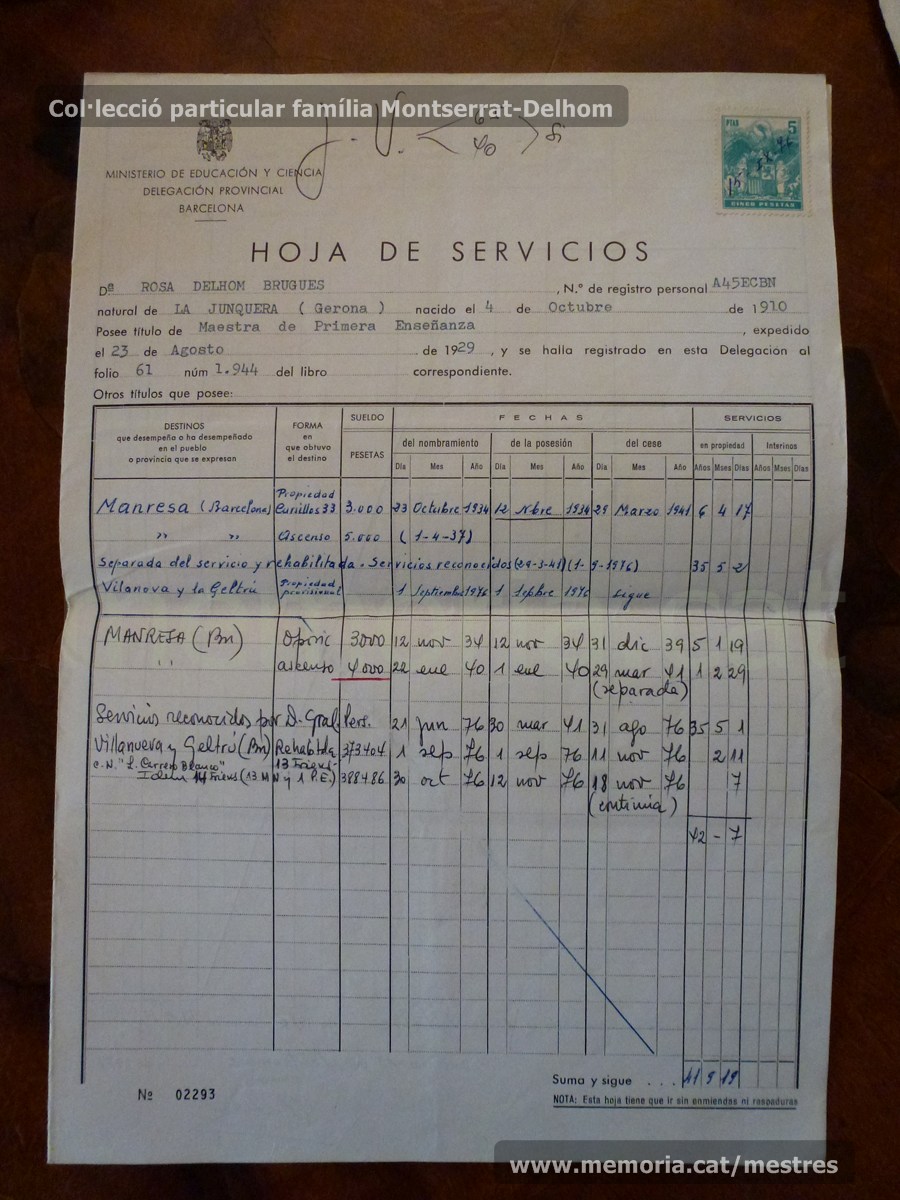 Col·lecció particular família Montserrat-Delhom
J. V. < 40 > Si
MINISTERIO DE EDUCACIÓN Y CIENCIA
DELEGACIÓN PROVINCIAL
BARCELONA
PTAS 5
CINCO PESETAS
HOJA DE SERVICIOS
Dª ROSA DELHOM BRUGUES , N.º de registro personal A45ECBN
natural de LA JUNQUERA ( Gerona ) nacido el 4 de Octubre de 1910
Posee título de Maestra de Primera Enseñanza , expedido
el 23 de Agosto de 1929 , y se halla registrado en esta Delegación al
folio 61 núm 1.944 del libro correspondiente.
Otros títulos que posee:
DESTINOS que desempeña o ha desempeñado en el pueblo o provincia que se expresan
FORMA en que obtuvo el destino
SUELDO PESETAS
FECHAS
SERVICIOS
del nombramiento de la posesión del cese en propiedad Interinos
Día Mes Año Día Mes Año Día Mes Año Años Mses Días Años Mses Días
Manresa (Barcelona) Propiedad Cursillos 33 3.000 23 Octubre 1934 12 Nbre 1934 29 Marzo 1941 6 4 17
" " Ascenso 5.000 (1-4-37)
Separada del servicio y rehabilitada. Servicios reconocidos (29-3-41) (1-9-1976) 35 5 2
Vilanova y la Geltrú Propiedad provisional 1 Septiembre 1976 1 Sepbre 1976 sigue
MANRESA (Bn) Oposic 3000 12 nov 34 12 nov 34 31 dic 39 5 1 19
" askenso 4000 22 ene 40 1 ene 40 29 mar 41 1 2 29
(separada)
Servicios reconocidos por D. Gral. Pers. 21 jun 76 30 mar 41 31 ago 76 35 5 1
Villanueva y Geltrú (Bn) Rehabtda 373404 1 sep 76 1 sep 76 11 nov 76 2 11
C.N. "L. Carrero Blanco" 13 Trieus
Idem 14 Trieus (13 MN y 1 P.E.) 388486 30 oct 76 12 nov 76 18 nov 76 7
(continúa)
42 - 7
Suma y sigue . . . 41 9 19
Nº 02293
NOTA: Esta hoja tiene que ir sin enmiendas ni raspaduras
www.memoria.cat/mestres